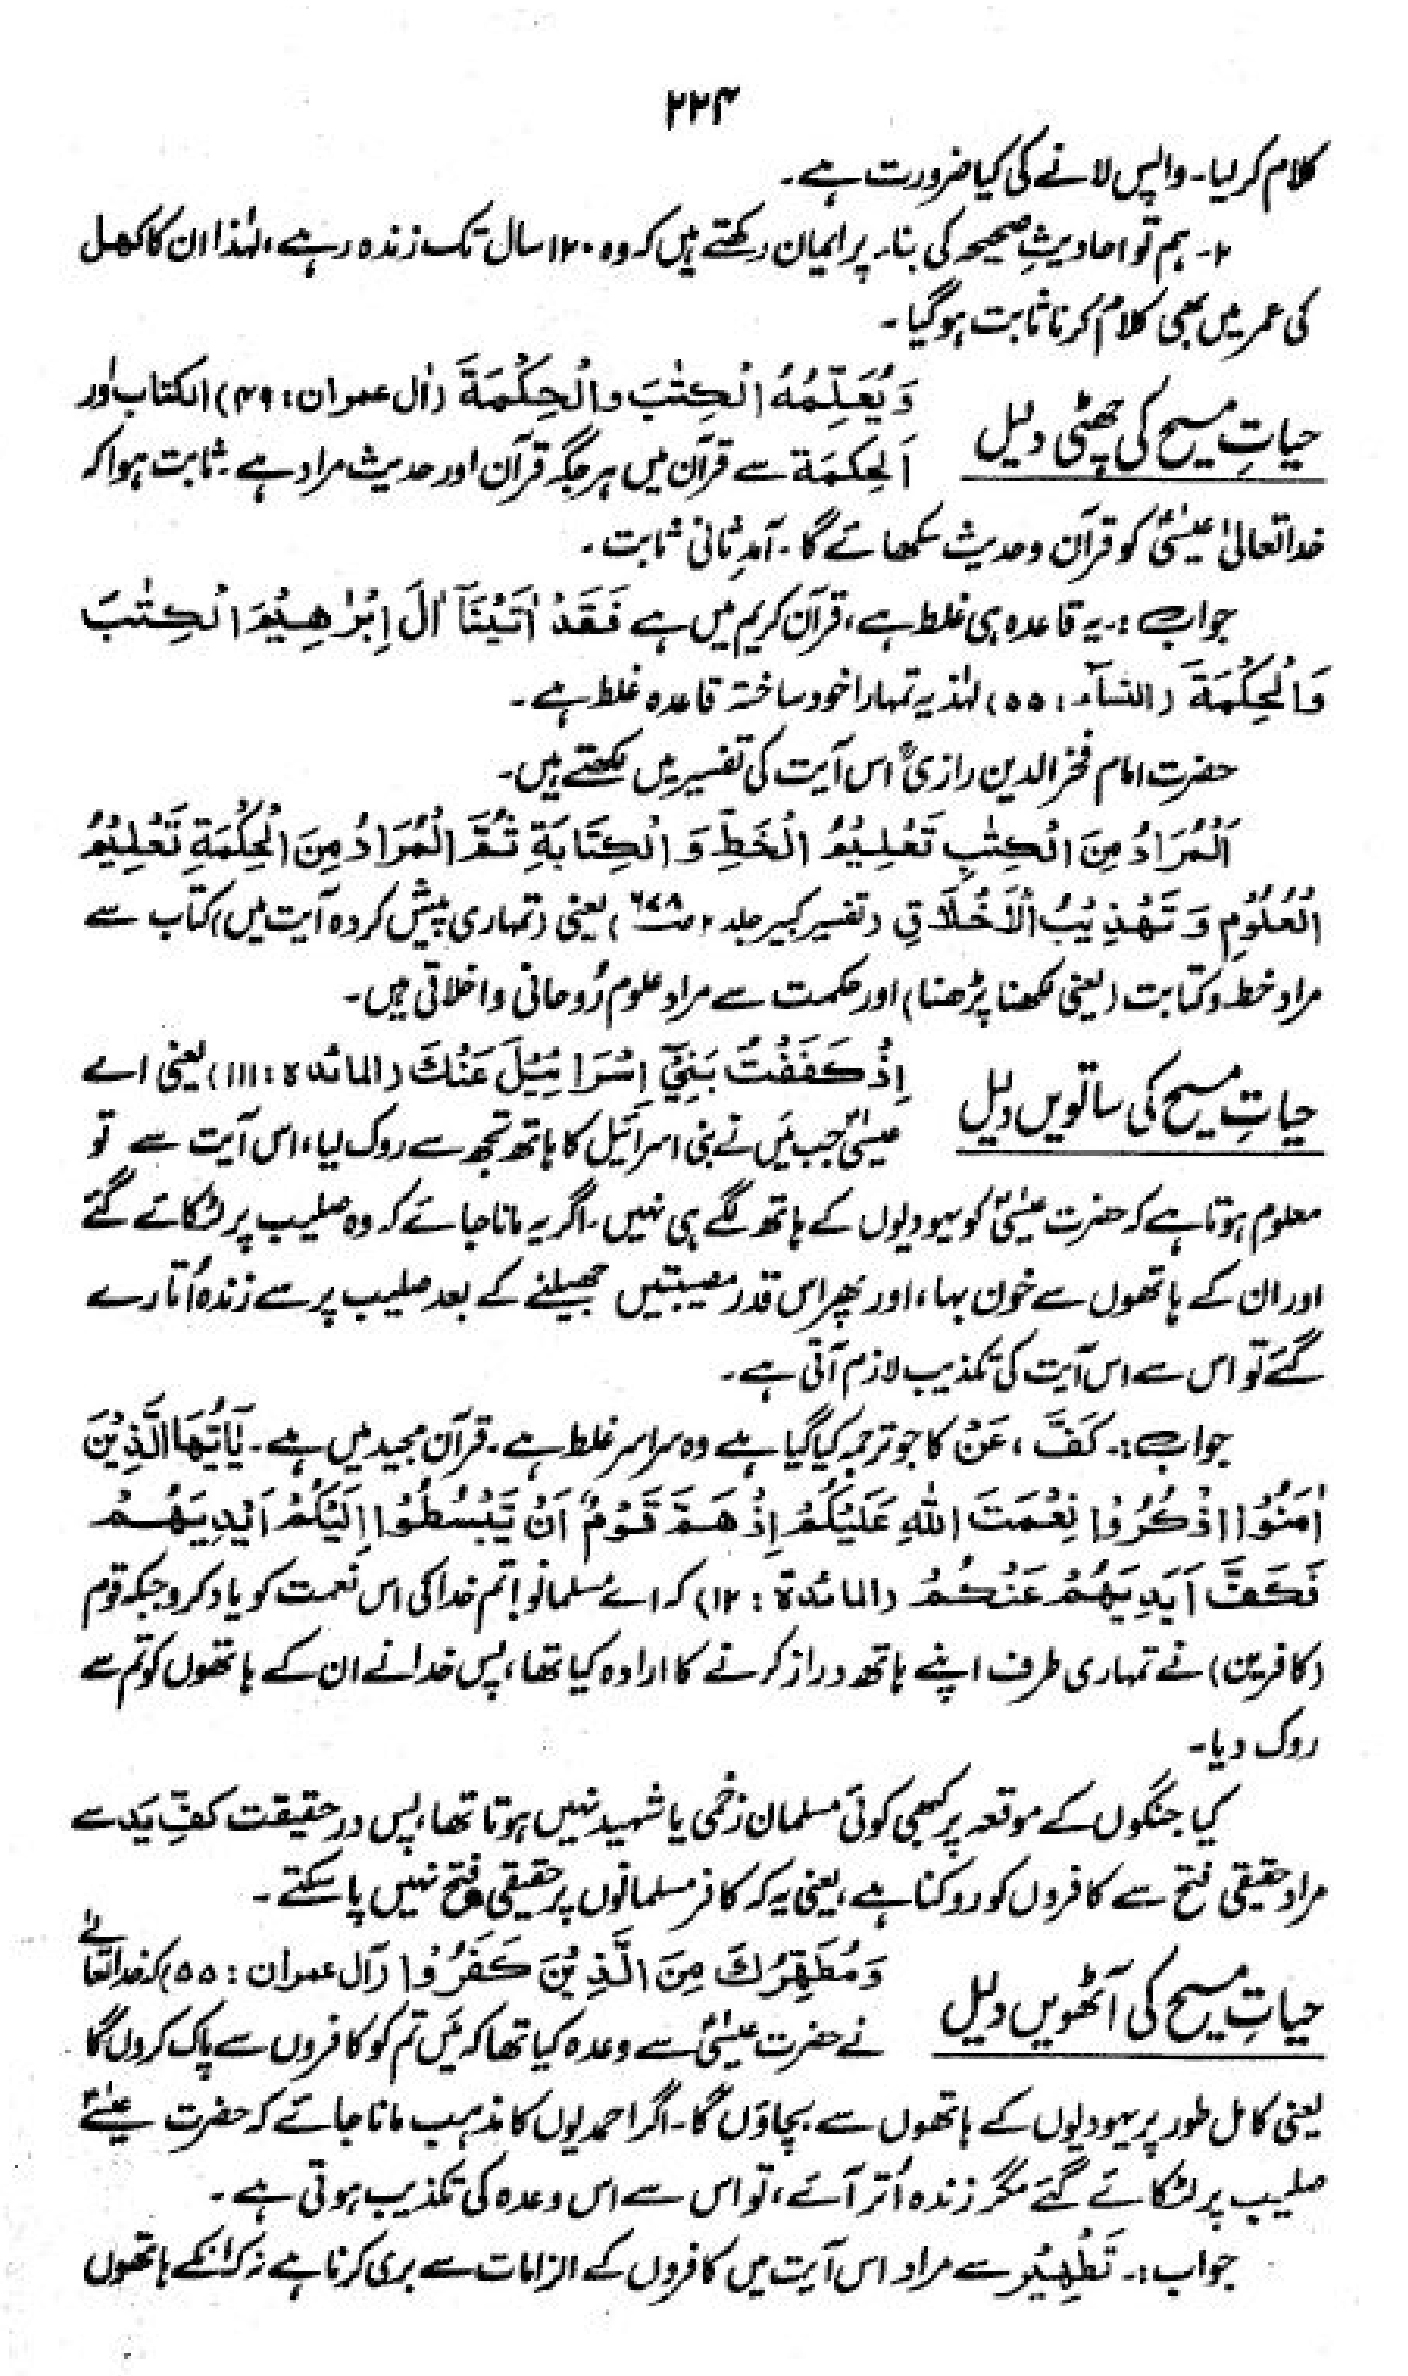 ۲۲۴
کلام کر لیا۔ واپس لانے کی کیا ضرورت ہے۔
۲۔ ہم تو احادیثِ صحیحہ کی بناء پر ایمان رکھتے ہیں کہ وہ ۱۲۰ سال تک زندہ رہے، لہٰذا ان کا کھل
کی عمر میں بھی کلام کرنا ثابت ہو گیا۔
حیاتِ مسیح کی چھٹی دلیل
وَيُعَلِّمُهُ الْكِتٰبَ والْحِكْمَةَ (اٰل عمران: ۴۹) الکتاب اور
اَلحِکمَة سے قرآن میں ہر جگہ قرآن اور حدیث مراد ہے۔ ثابت ہوا کہ
خدا تعالیٰ عیسیٰؑ کو قرآن و حدیث سکھائے گا۔ آمدِ ثانی ثابت۔
جواب:۔ یہ قاعدہ ہی غلط ہے، قرآن کریم میں ہے فَقَدْ اٰتَيْنَآ اٰلَ اِبْرٰهِيْمَ الْكِتٰبَ
وَالْحِكْمَةَ (النسآء: ۵۵) لہٰذ یہ تمہارا خود ساختہ قاعدہ غلط ہے۔
حضرت امام فخر الدین رازیؒ اس آیت کی تفسیر میں لکھتے ہیں۔
اَلْمُرَادُ مِنَ الْكِتٰبِ تَعْلِيْمُ الْخَطِّ وَ الْكِتَابَةِ ثُمَّ الْمُرَادُ مِنَ الْحِكْمَةِ تَعْلِيْمُ
الْعُلُوْمِ وَ تَهْذِيْبُ الْاَخْلَاقِ (تفسیر کبیر جلد ۲ صـ۶۷۸) یعنی (تمہاری پیش کردہ آیت میں) کتاب سے
مراد خط و کتابت (یعنی لکھنا پڑھنا) اور حکمت سے مراد علوم رُوحانی و اخلاقی ہیں۔
حیاتِ مسیح کی ساتویں دلیل
اِذْ كَفَفْتُ بَنِيْٓ اِسْرَآئِيْلَ عَنْكَ (المائدة: ۱۱۱) یعنی اے
عیسیٰؑ جب مَیں نے بنی اسرائیل کا ہاتھ تجھ سے روک لیا، اس آیت سے تو
معلوم ہوتا ہے کہ حضرت عیسیٰؑ کو یہودیوں کے ہاتھ لگے ہی نہیں۔ اگر یہ مانا جائے کہ وہ صلیب پر لٹکائے گئے
اور ان کے ہاتھوں سے خون بہا، اور پھر اس قدر مصیبتیں جھیلنے کے بعد صلیب پر سے زندہ اُتارے
گئے تو اس سے اس آیت کی تکذیب لازم آتی ہے۔
جواب:۔ كَفَّ، عَنْ کا جو ترجمہ کیا گیا ہے وہ سراسر غلط ہے۔ قرآن مجید میں ہے۔ يٰٓاَيُّهَا الَّذِيْنَ
اٰمَنُوا اذْكُرُوْا نِعْمَتَ اللّٰهِ عَلَيْكُمْ اِذْ هَمَّ قَوْمٌ اَنْ يَّبْسُطُوْا اِلَيْكُمْ اَيْدِيَهُمْ
فَكَفَّ اَيْدِيَهُمْ عَنْكُمْ (المائدة: ۱۲) کہ اے مُسلمانو! تم خدا کی اس نعمت کو یاد کرو جبکہ قوم
(کافرین) نے تمہاری طرف اپنے ہاتھ دراز کرنے کا ارادہ کیا تھا، پس خدا نے ان کے ہاتھوں کو تم سے
روک دیا۔
کیا جنگوں کے موقعہ پر کبھی کوئی مسلمان زخمی یا شہید نہیں ہوتا تھا، پس در حقیقت کفِّ یَد سے
مراد حقیقی فتح سے کافروں کو روکنا ہے، یعنی یہ کہ کافر مسلمانوں پر حقیقی فتح نہیں پا سکتے۔
حیاتِ مسیح کی آٹھویں دلیل
وَمُطَهِّرُكَ مِنَ الَّذِيْنَ كَفَرُوْا (آل عمران: ۵۵) کہ خدا تعالےٰ
نے حضرت عیسیٰؑ سے وعدہ کیا تھا کہ مَیں تم کو کافروں سے پاک کروں گا
یعنی کامل طور پر یہودیوں کے ہاتھوں سے بچاؤں گا۔ اگر احمدیوں کا مذہب مانا جائے کہ حضرت عیسےٰؑ
صلیب پر لٹکائے گئے مگر زندہ اُتر آئے، تو اس سے اس وعدہ کی تکذیب ہوتی ہے۔
جواب:۔ تَطْهِيْر سے مراد اس آیت میں کافروں کے الزامات سے بری کرنا ہے نہ کہ انکے ہاتھوں